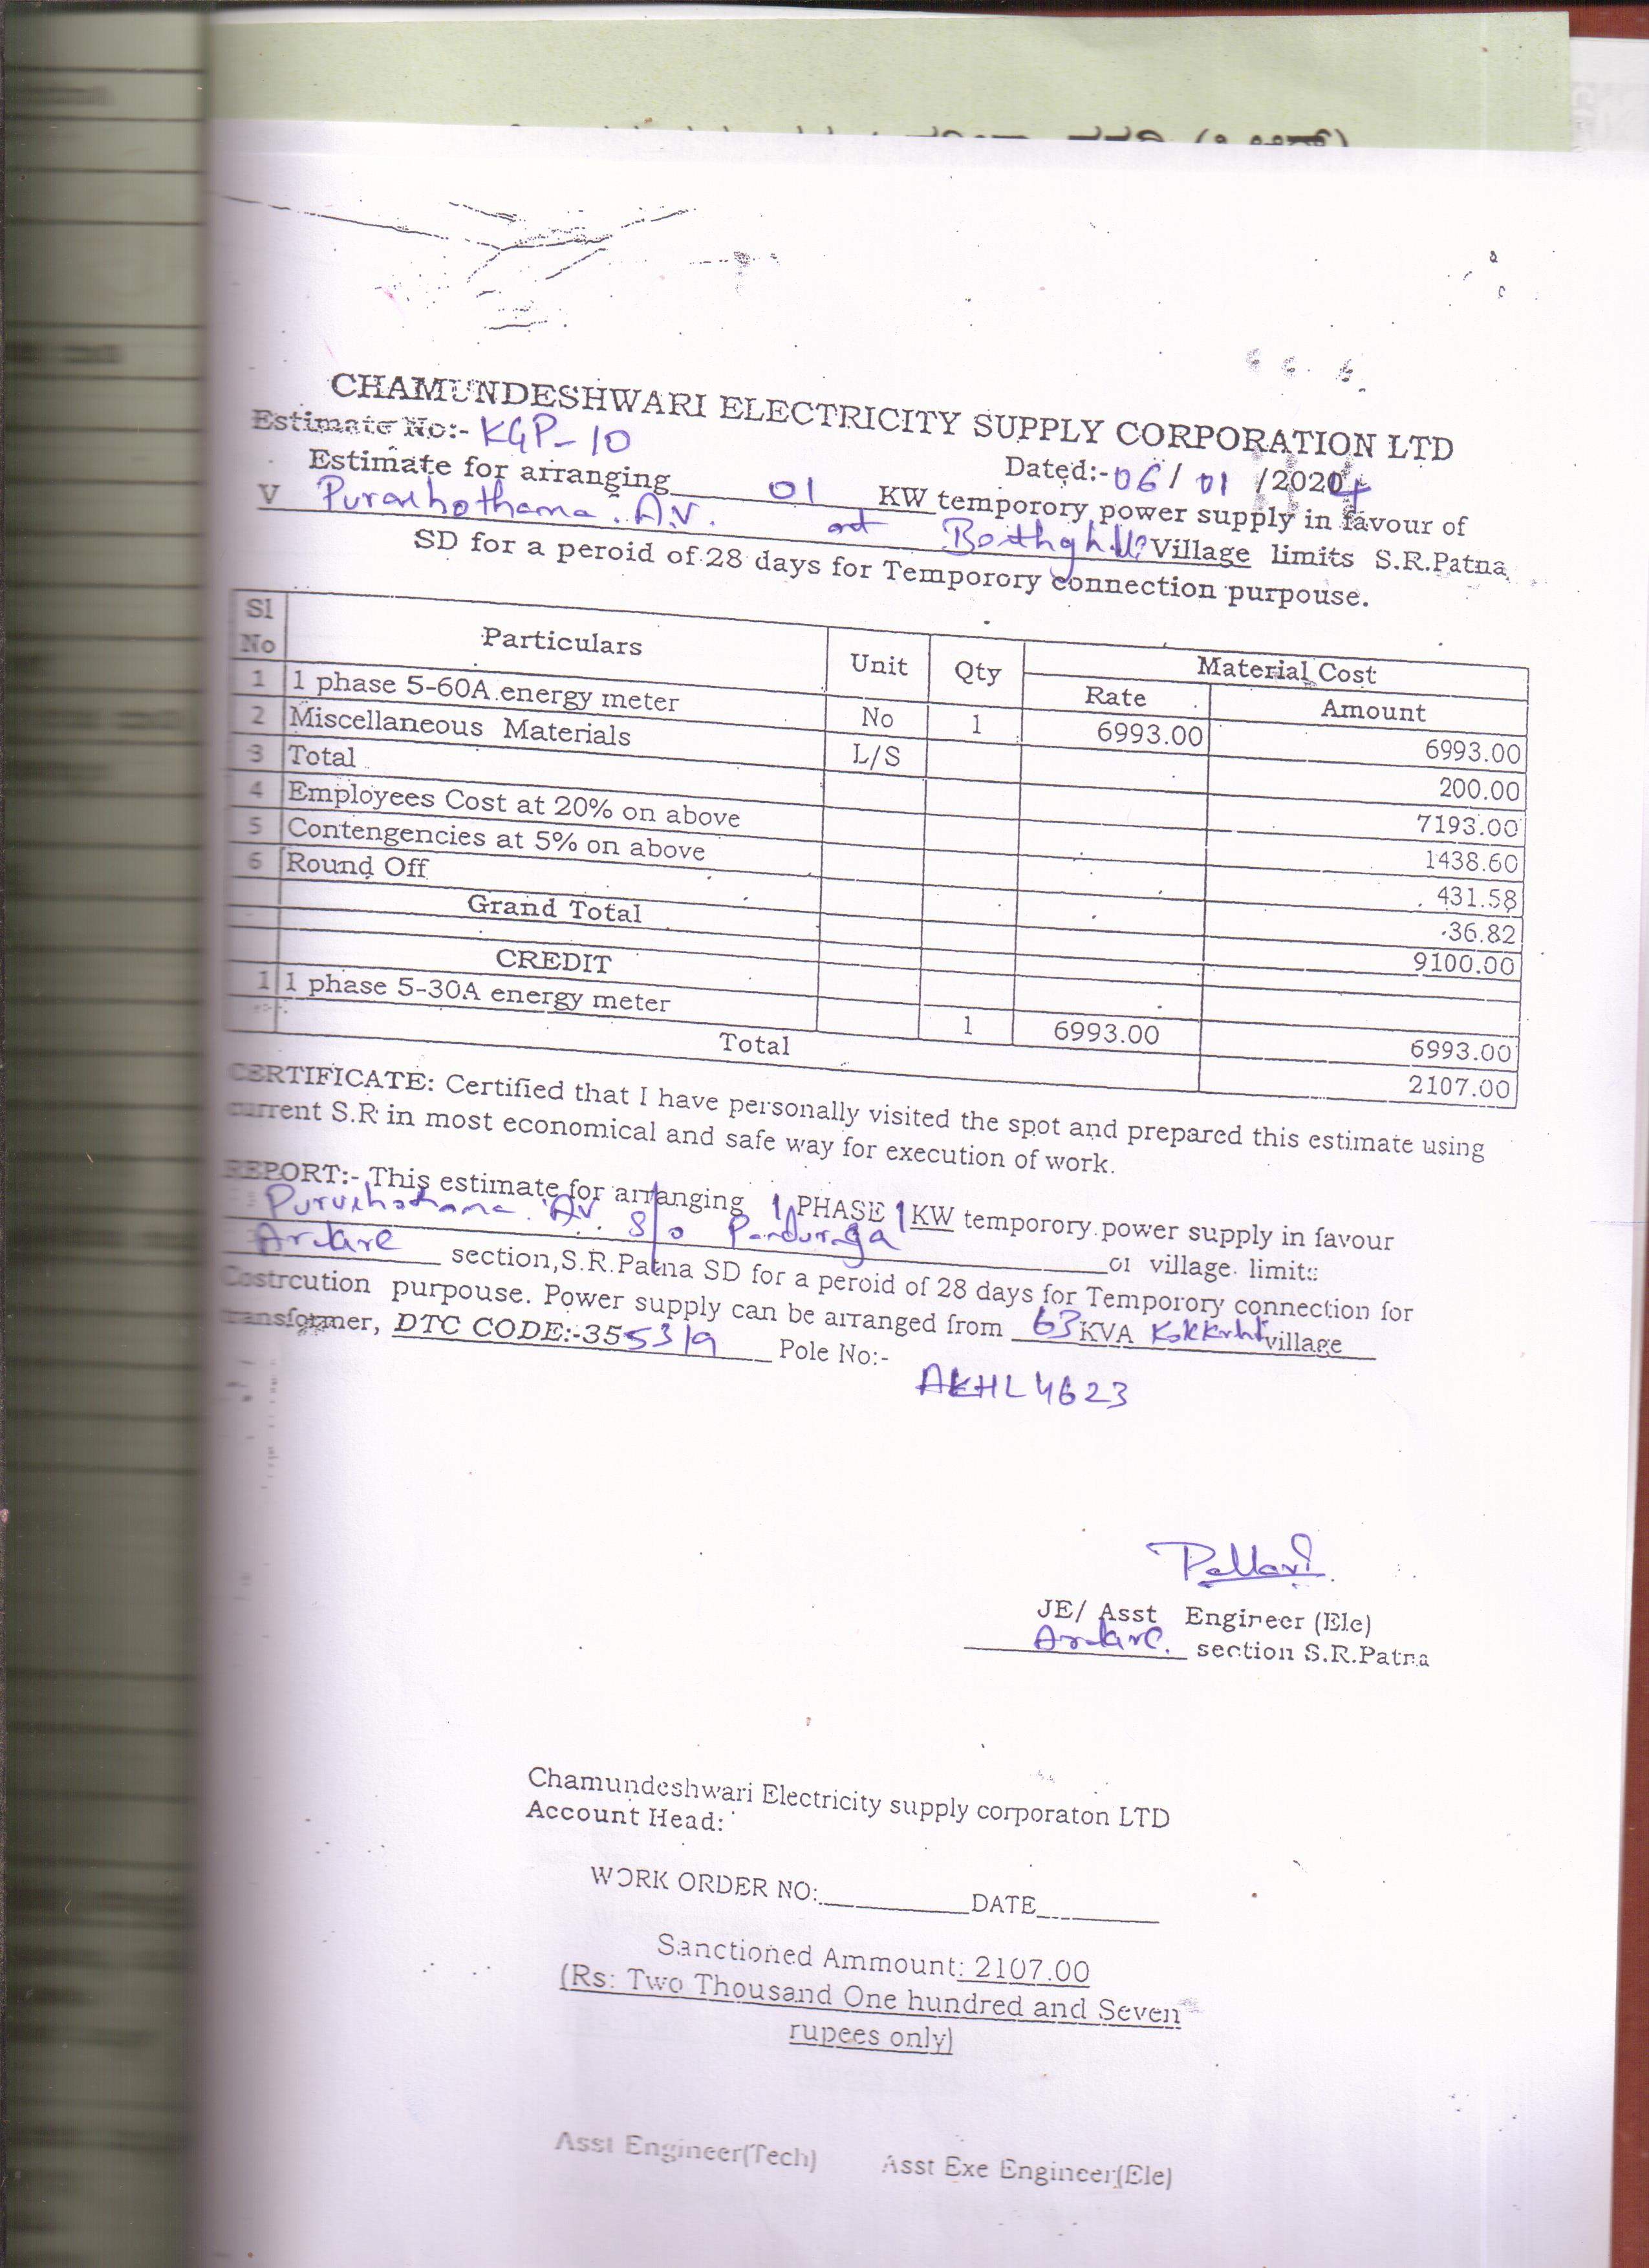 CHAMUNDESHWARI ELECTRICITY SUPPLY CORPORATION LTD
Estimate No:- KGP-10
Dated:-06/01/2024
Estimate for arranging 01 KW temporory power supply in favour of
V Purushothama. A.V. at Village limits S.R.Patna
SD for a peroid of 28 days for Temporory connection purpouse.
Sl No Particulars Unit Qty Material Cost
Rate Amount
1 1 phase 5-60A energy meter No 1 6993.00 6993.00
2 Miscellaneous Materials L/S 200.00
3 Total 7193.00
4 Employees Cost at 20% on above 1438.60
5 Contengencies at 5% on above 431.58
6 Round Off 36.82
Grand Total 9100.00
CREDIT
1 1 phase 5-30A energy meter 1 6993.00 6993.00
Total 2107.00
CERTIFICATE: Certified that I have personally visited the spot and prepared this estimate using
current S.R in most economical and safe way for execution of work.
REPORT:- This estimate for arranging 1 PHASE 1 KW temporory power supply in favour
Purushothama. A.V. S/o Panduranga of village limits
Arakere section,S.R.Patna SD for a peroid of 28 days for Temporory connection for
Costrcution purpouse. Power supply can be arranged from 63 KVA village
transformer, DTC CODE:-355319 Pole No:-
AKHL4623
Pallavi
JE/ Asst Engineer (Ele)
Arakere. section S.R.Patna
Chamundeshwari Electricity supply corporaton LTD
Account Head:
WORK ORDER NO:__________DATE________
Sanctioned Ammount: 2107.00
(Rs: Two Thousand One hundred and Seven
rupees only)
Asst Engineer(Tech) Asst Exe Engineer(Ele)